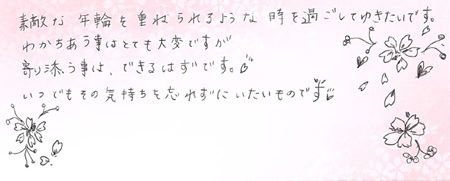 素敵な年輪を重ねられるような時を過ごしてゆきたいです。
わかちあう事はとても大変ですが
寄り添う事は、できるはずです。
いつでもその気持ちを忘れずにいたいものです